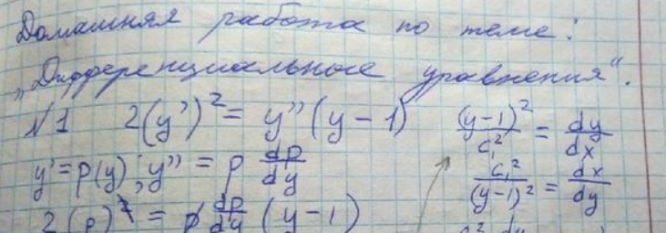 Домашняя работа по теме:
„Дифференциальное уравнения".
№1 2(y')² = y''(y-1)
y' = p(y); y'' = p dp/dy
2(p)² = p dp/dy (y-1)
(y-1)²/c₁² = dy/dx
c₁²/(y-1)² = dx/dy